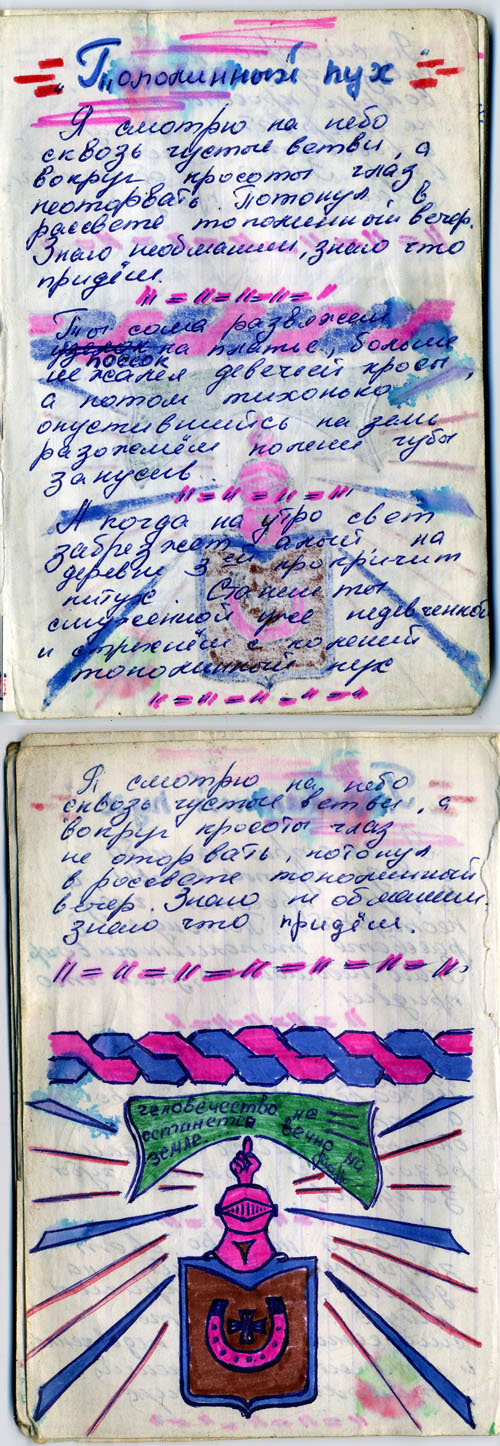 "Тополинный пух"
Я смотрю на небо
сквозь густые ветви, а
вокруг красоты глаз
неоторвать. Потонул в
рассвете тополинный вечер.
Знаю необманиш, знаю что
придёш.
Ты сама развяжеш
поясок на платье, больше
не жалея девечьей красы,
а потом тихонько
опустившийсь на земь
разожмём колени губы
закусив...
А когда на утро свет
забрезжет алый и на
деревне 3-ей прокричит
питух. Станеш ты
смущённой уже недевченкой
и стряхнём с коленей
тополинный пух
Я смотрю на небо
сквозь густые ветви, а
вокруг красоты глаз
не оторвать, потонул
в россвете тополинный
вечер. Знаю не обманиш.
знаю что придёш.
человечество не
останется вечно на
земле...